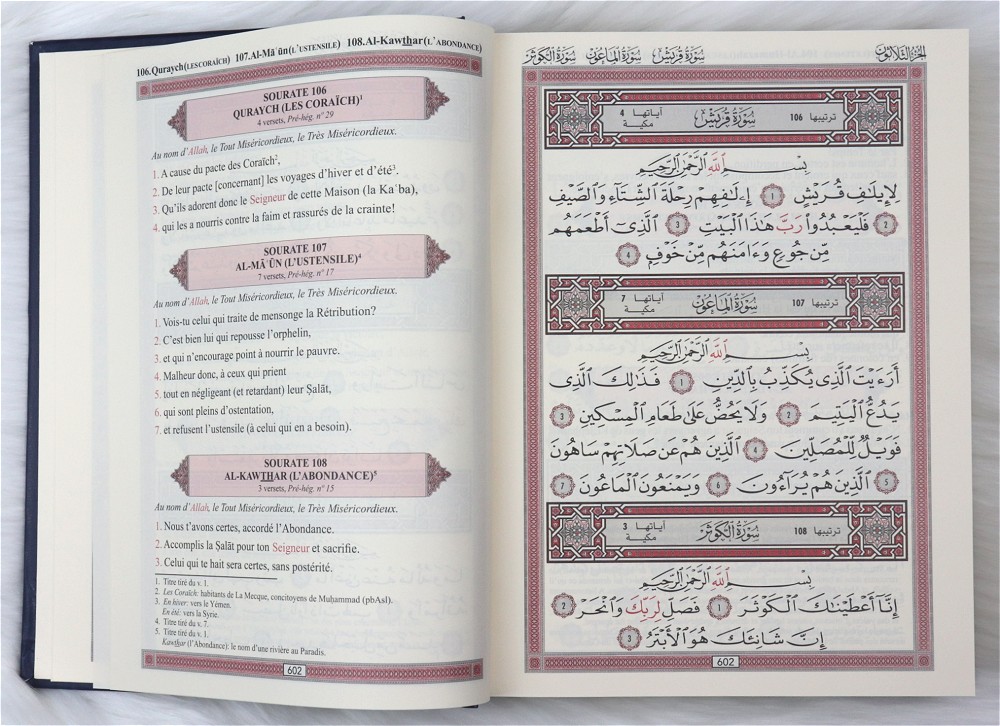 106.Quraych(LESCORAÏCH) 107.Al-Māʿūn(L'USTENSILE) 108.Al-Kawthar(L'ABONDANCE)
SOURATE 106
QURAYCH (LES CORAÏCH)¹
4 versets, Pré-hég. n° 29
Au nom d'Allah, le Tout Miséricordieux, le Très Miséricordieux.
1. A cause du pacte des Coraïch²,
2. De leur pacte [concernant] les voyages d'hiver et d'été³.
3. Qu'ils adorent donc le Seigneur de cette Maison (la Kaʿba),
4. qui les a nourris contre la faim et rassurés de la crainte!
SOURATE 107
AL-MĀʿŪN (L'USTENSILE)⁴
7 versets, Pré-hég. n° 17
Au nom d'Allah, le Tout Miséricordieux, le Très Miséricordieux.
1. Vois-tu celui qui traite de mensonge la Rétribution?
2. C'est bien lui qui repousse l'orphelin,
3. et qui n'encourage point à nourrir le pauvre.
4. Malheur donc, à ceux qui prient
5. tout en négligeant (et retardant) leur Ṣalāt,
6. qui sont pleins d'ostentation,
7. et refusent l'ustensile (à celui qui en a besoin).
SOURATE 108
AL-KAWTHAR (L'ABONDANCE)⁵
3 versets, Pré-hég. n° 15
Au nom d'Allah, le Tout Miséricordieux, le Très Miséricordieux.
1. Nous t'avons certes, accordé l'Abondance.
2. Accomplis la Ṣalāt pour ton Seigneur et sacrifie.
3. Celui qui te hait sera certes, sans postérité.
1. Titre tiré du v. 1.
2. Les Coraïch: habitants de La Mecque, concitoyens de Muḥammad (pbAsl).
3. En hiver: vers le Yémen.
En été: vers la Syrie.
4. Titre tiré du v. 7.
5. Titre tiré du v. 1.
Kawthar (l'Abondance): le nom d'une rivière au Paradis.
602
الجزء الثلاثون سورة قريش سورة الماعون سورة الكوثر
ترتيبها 106 سورة قريش آياتها 4 مكية
بِسْمِ اللَّهِ الرَّحْمَٰنِ الرَّحِيمِ
لِإِيلَٰفِ قُرَيْشٍ ۝١ إِۦلَٰفِهِمْ رِحْلَةَ الشِّتَآءِ وَالصَّيْفِ
۝٢ فَلْيَعْبُدُوا۟ رَبَّ هَٰذَا الْبَيْتِ ۝٣ الَّذِىٓ أَطْعَمَهُم
مِّن جُوعٍ وَءَامَنَهُم مِّنْ خَوْفٍۭ ۝٤
ترتيبها 107 سورة الماعون آياتها 7 مكية
بِسْمِ اللَّهِ الرَّحْمَٰنِ الرَّحِيمِ
أَرَءَيْتَ الَّذِى يُكَذِّبُ بِالدِّينِ ۝١ فَذَٰلِكَ الَّذِى
يَدُعُّ الْيَتِيمَ ۝٢ وَلَا يَحُضُّ عَلَىٰ طَعَامِ الْمِسْكِينِ ۝٣
فَوَيْلٌ لِّلْمُصَلِّينَ ۝٤ الَّذِينَ هُمْ عَن صَلَاتِهِمْ سَاهُونَ
۝٥ الَّذِينَ هُمْ يُرَآءُونَ ۝٦ وَيَمْنَعُونَ الْمَاعُونَ ۝٧
ترتيبها 108 سورة الكوثر آياتها 3 مكية
بِسْمِ اللَّهِ الرَّحْمَٰنِ الرَّحِيمِ
إِنَّآ أَعْطَيْنَٰكَ الْكَوْثَرَ ۝١ فَصَلِّ لِرَبِّكَ وَانْحَرْ ۝٢
إِنَّ شَانِئَكَ هُوَ الْأَبْتَرُ ۝٣
602